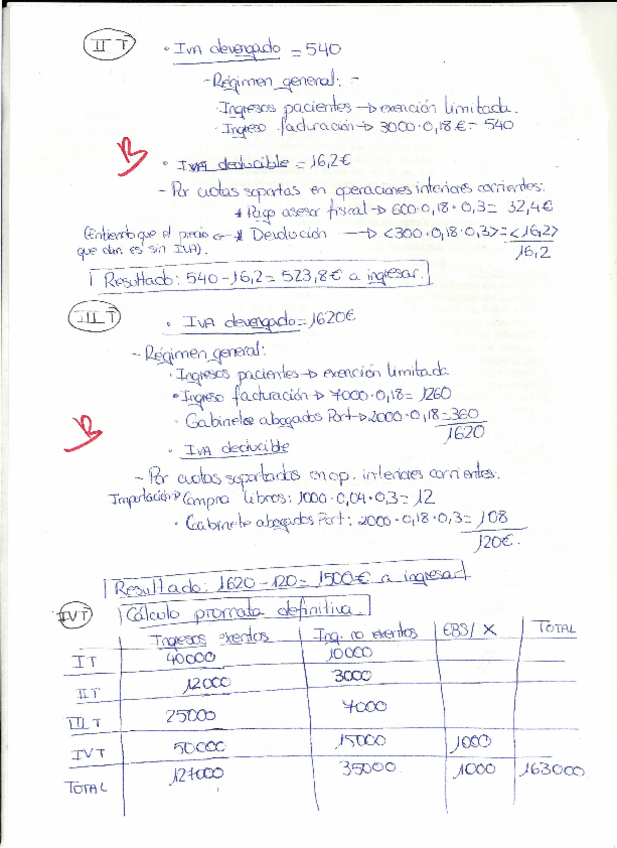 II T
· IVA devengado = 540
- Régimen general: -
· Ingresos pacientes → exención limitada.
· Ingreso facturación → 3000 · 0,18 € = 540
B
· IVA deducible = 16,2 €
- Por cuotas soportas en operaciones interiores corrientes:
* Pago asesor fiscal → 600 · 0,18 · 0,3 = 32,4 €
(Entiendo que el precio * Devolución → <300 · 0,18 · 0,3> = <16,2>
que dan es sin IVA). 16,2
Resultado: 540 - 16,2 = 523,8 € a ingresar.
III T
· IVA devengado = 1620 €
- Régimen general:
· Ingresos pacientes → exención limitada
· Ingreso facturación → 7000 · 0,18 = 1260
· Gabinete abogados Port → 2000 · 0,18 = 360
1620
B
· IVA deducible
- Por cuotas soportadas en op. interiores corrientes.
Importación → Compra libros: 1000 · 0,04 · 0,3 = 12
· Gabinete abogados Port: 2000 · 0,18 · 0,3 = 108
120 €.
Resultado: 1620 - 120 = 1500 € a ingresar
IV T Cálculo prorrata definitiva.
Ingresos exentos Ing. no exentos EBS/X TOTAL
I T 40000 10000
II T 12000 3000
III T 25000 7000
IV T 50000 15000 1000
TOTAL 127000 35000 1000 163000